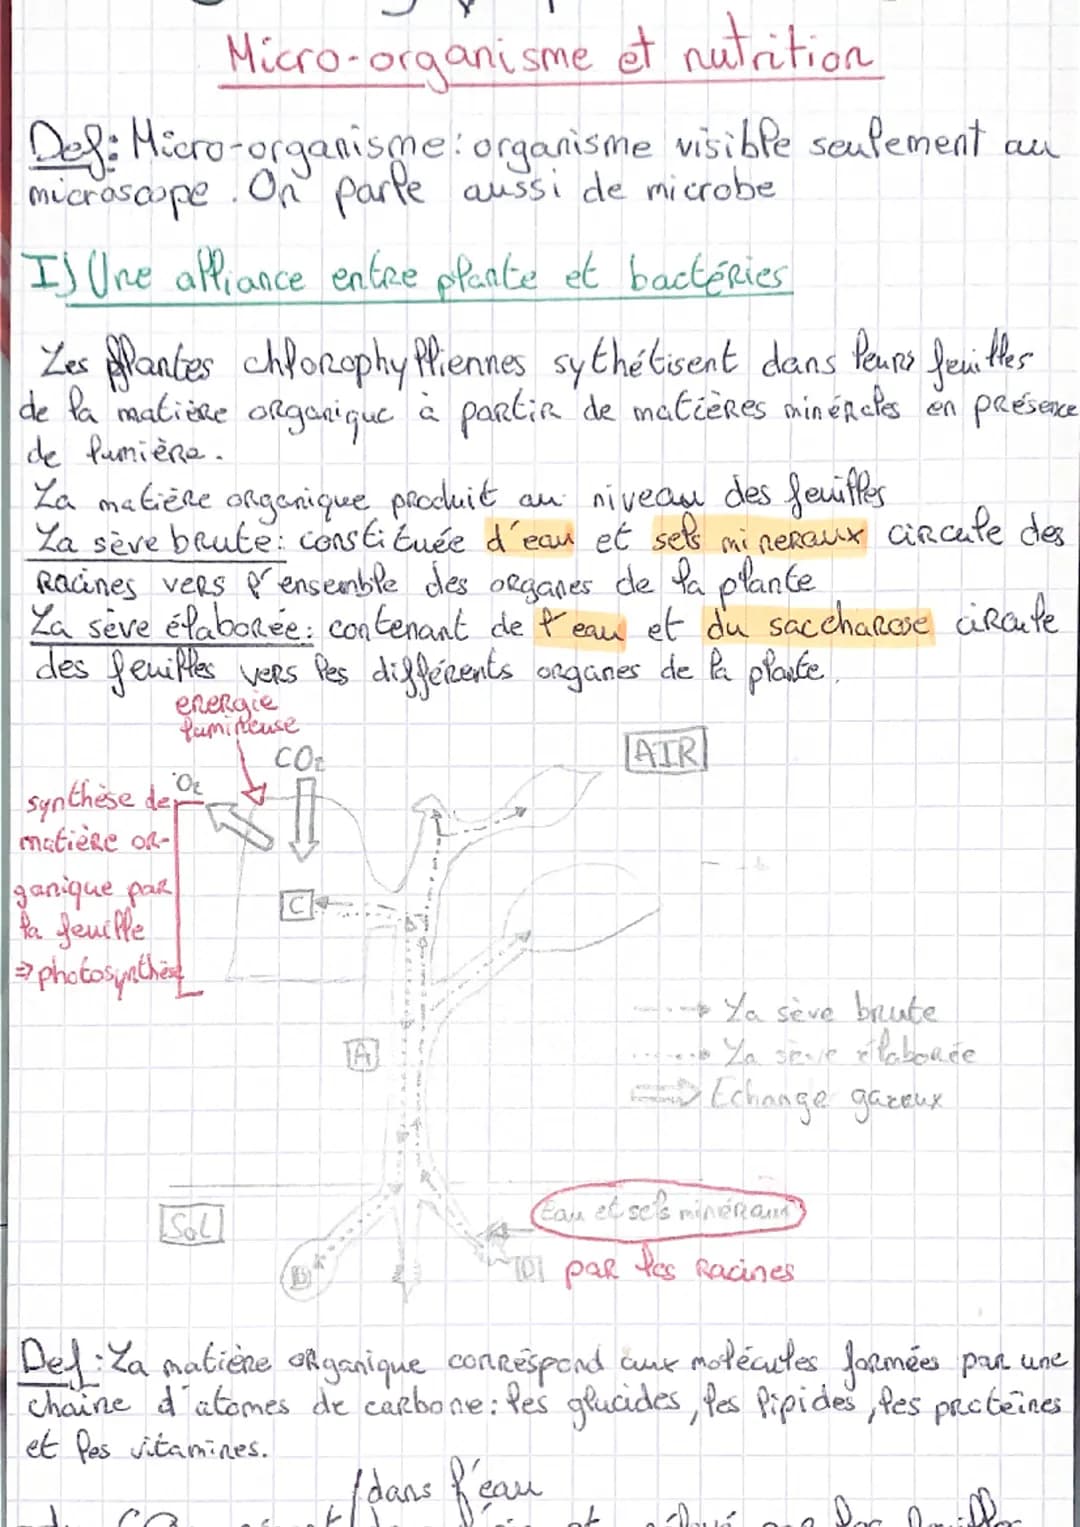 Micro-organisme et nutrition
Def: Micro-organisme: organisme visible seulement au
microscope. On parle aussi de microbe
I) Une alliance entre plante et bactéries
Les plantes chlorophylliennes sythétisent dans leurs feuilles
de la matière organique à partir de matières minérales en présence
de lumière.
La matière organique produit au niveau des feuilles
La sève brute: constituée d'eau et sels mineraux circule des
racines vers l'ensemble des organes de la plante
La sève élaborée: contenant de l'eau et du saccharose circule
des feuilles vers les différents organes de la plante.
energie
lumineuse
CO2
AIR
O2
synthèse de
matière or-
ganique par
la feuille
=> photosynthèse
C
La sève brute
La sève élaborée
A
Echange gazeux
Eau et sels minéraux
SOL
B
D
par les racines
Def: La matière organique correspond aux molécules formées par une
chaine d'atomes de carbone: les glucides, les lipides, les protéines
et les vitamines.
/dans l'eau